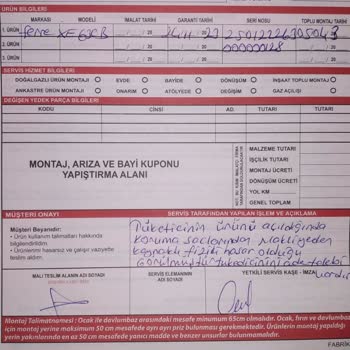 ÜRÜN BİLGİLERİ
MARKASI MODELİ İMALAT TARİHİ GARANTİ TARİHİ SERİ NOSU TOPLU MONTAJ TARİHİ
1. ÜRÜN ferre XF63CB / / 20 24/11/2023 250122263050443 / / 20
2. ÜRÜN / / 20 / / 20 00000128 / / 20
3. ÜRÜN / / 20 / / 20 / / 20
SERVİS HİZMET BİLGİLERİ
DOĞALGAZLI ÜRÜN MONTAJI EVDE BAYİDE DÖNÜŞÜM İNŞAAT TOPLU MONTAJ
ANKASTRE ÜRÜN MONTAJI ONARIM ATÖLYEDE DEĞİŞİM GAZ AÇILIŞI
DEĞİŞEN YEDEK PARÇA BİLGİLERİ
KODU CİNSİ AD. TUTARI TUTARI
MONTAJ, ARIZA VE BAYİ KUPONU
YAPIŞTIRMA ALANI
MALZEME TUTARI
İŞÇİLİK TUTARI
MONTAJ ÜCRETİ
DÖNÜŞÜM ÜCRETİ
YOL KM
GENEL TOPLAM
MÜŞTERİ ONAYI SERVİS TARAFINDAN YAPILAN İŞLEM VE AÇIKLAMA
Müşteri Beyanıdır:
• Ürün kullanım talimatları hakkında
bilgilendirildim
• Ürünlerimi hasarsız ve çalışır vaziyette
teslim aldım.
Tüketicinin ürünü açıldığında
koruma saclarından nakliyeden
kaynaklı fiziki hasar olduğu
görülmüştür tüketicinin iade talebi
vardır
MALI TESLİM ALANIN ADI SOYADI SERVİS ELEMANININ ADI SOYADI YETKİLİ SERVİS KAŞE - İMZA
Montaj Talimatnamesi: Ocak ile davlumbaz arasındaki mesafe minimum 65cm olmalıdır. Ocak, fırın ve davlumbaz
için montaj yerine maksimum 50 cm mesafede ayrı ayrı priz bulunması gerekmektedir. Ürünlerin montaj yapıldığı
yerin yakınlarında en az 50 cm mesafede yanıcı madde ve benzer unsurlar bulunmamalıdır.
FABRİK